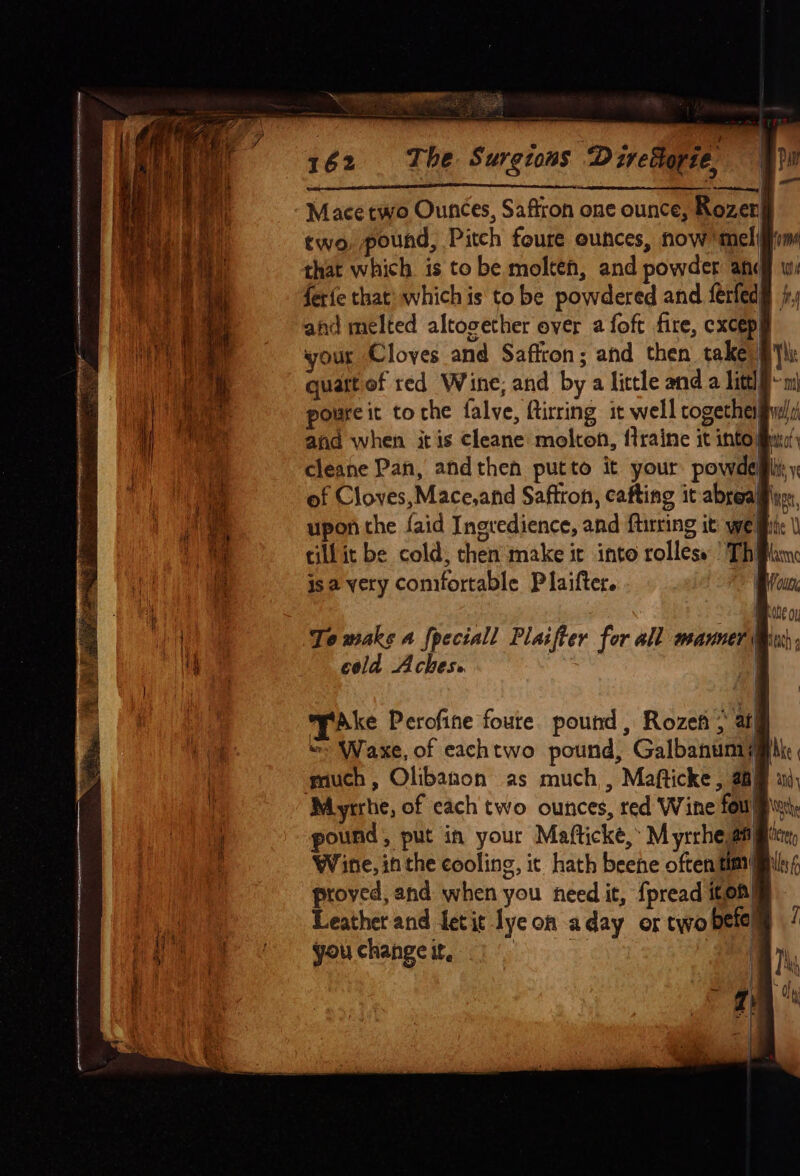 162 The Surgions Directorie,
Mace two Ounces, Saffron one ounce, Rozen
two pound, Pitch foure ounces, now melt
that which is to be molten, and powder and
ſerſe that which is to be powdered and ſerſed
and melted altogether over a ſoft fire, except
your Cloves and Saffron; and then take
quart of red Wine; and by a little and a little
poure it to the ſalve, ſtirring it well together
and when it is cleane molton, ſtraine it into
cleane Pan, and then put to it your powder
of Cloves, Mace, and Saffron, caſting it abroad
upon the ſaid Ingredience, and ſtirring it well
till it be cold, then make it into rolles. Th
is a very comfortable Plaiſter.
To make a ſpeciall Plaiſter for all manner
cold Aches.
TAke Peroſine foure pound, Rozen, an
Waxe, of each two pound, Galbanum
much, Olibanon as much, Maſticke, an
Myrrhe, of each two ounces, red Wine fou
pound, put in your Maſticke, Myrrhe, an
Wine, in the cooling, it hath beene often tim
proved, and when you need it, ſpread it on
Leather and let it lye on a day or two befo
you change it.